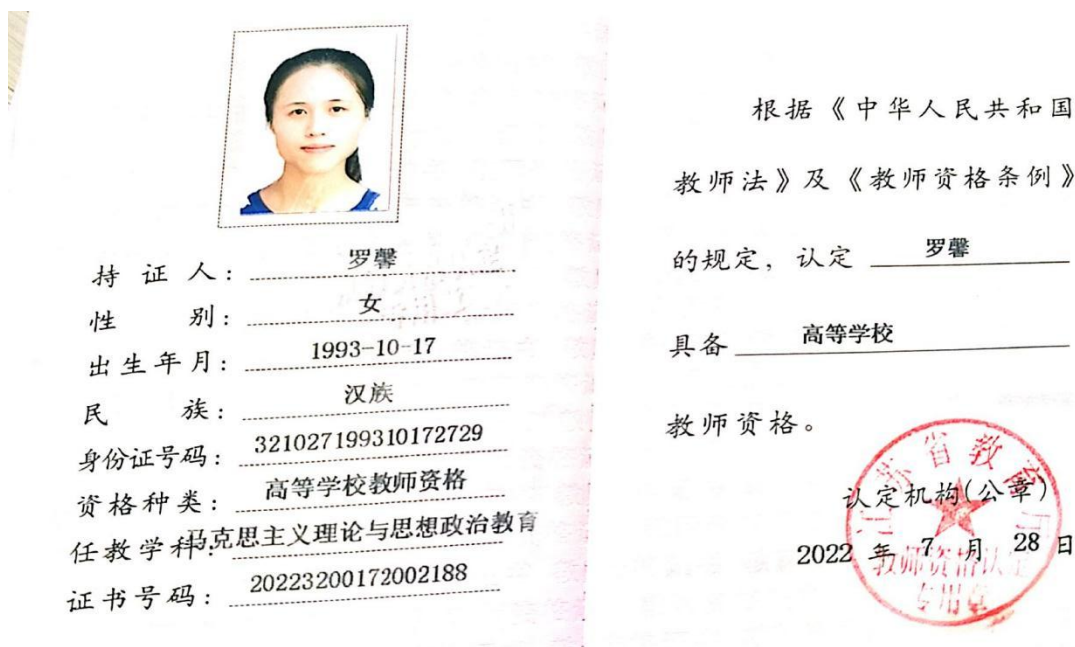 持证人：罗馨
性别：女
出生年月：1993-10-17
民族：汉族
身份证号码：321027199310172729
资格种类：高等学校教师资格
任教学科：马克思主义理论与思想政治教育
证书号码：20223200172002188
根据《中华人民共和国
教师法》及《教师资格条例》
的规定，认定 罗馨
具备 高等学校
教师资格。
江苏省教育厅
认定机构(公章)
2022 年 7 月 28 日
教师资格认定
专用章